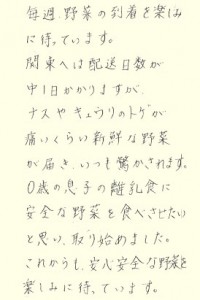 毎週、野菜の到着を楽しみ
に待っています。
関東へは配送日数が
中1日かかりますが、
ナスやキュウリのトゲが
痛いくらい新鮮な野菜
が届き、いつも驚かされます。
0歳の息子の離乳食に
安全な野菜を食べさせたい
と思い、取り始めました。
これからも、安心安全な野菜を
楽しみに待っています。